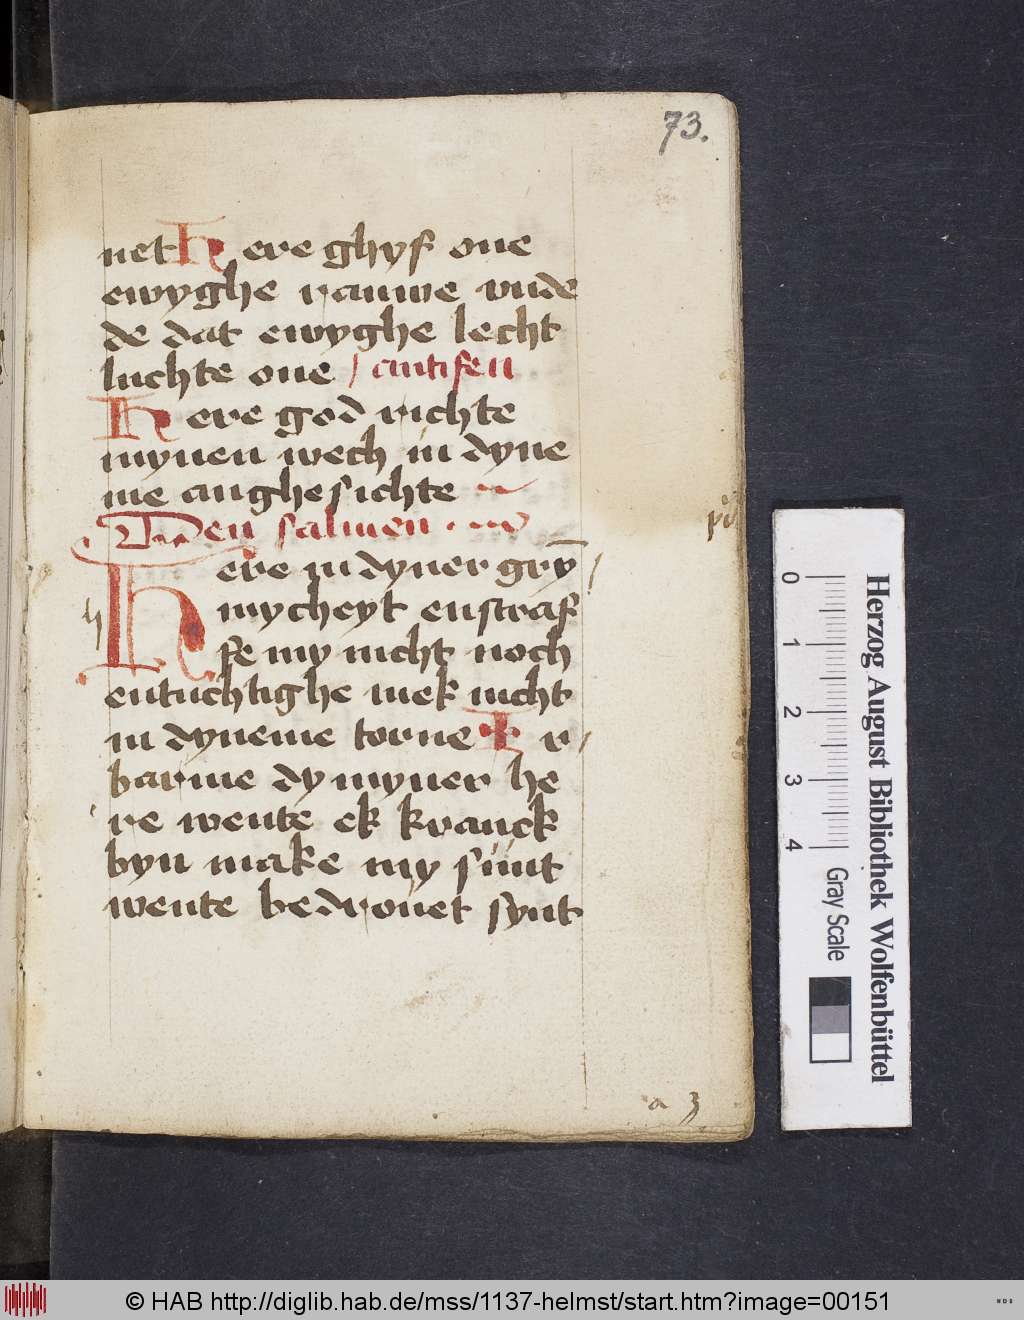 73.
net Here ghyf one
ewyghe rauwe vnde
de dat ewyghe lecht
luchte one / antifen
Here god richte
mynen wech in dyne
me anghesichte
Den salmen
Here in dyner gry̅
mycheyt enstraf
fe my nicht noch
entuchtighe mek nicht
in dyneme torne Er
barme dy myner he
re wente ek kranck
byn make my sunt
wente bedrouet synt
a 3
0 1 2 3 4
Gray Scale
Herzog August Bibliothek Wolfenbüttel
© HAB http://diglib.hab.de/mss/1137-helmst/start.htm?image=00151